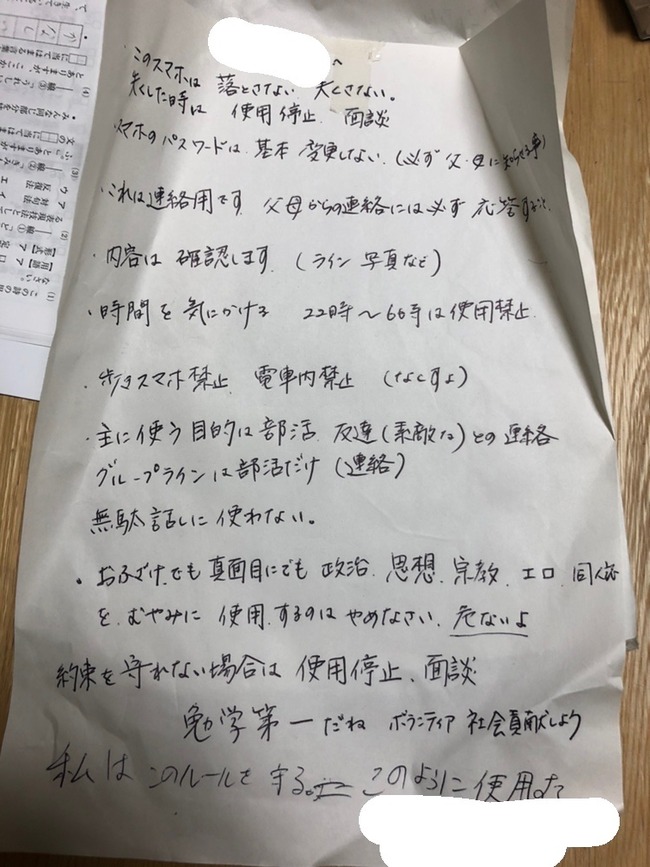 へ
・このスマホは 落とさない 失くさない。
失くした時は 使用停止 面談
・スマホのパスワードは 基本 変更しない (必ず父・母に知らせる事)
・これは連絡用です 父母からの連絡には必ず 応答すること
・内容は 確認します (ライン 写真など)
・時間を気にかける 22時〜6時は使用禁止
・歩きスマホ禁止 電車内禁止 (なくすよ)
・主に使う目的は部活 友達(素敵な)との連絡
グループラインは部活だけ (連絡)
無駄話しに使わない。
・おふざけでも真面目にでも 政治、思想、宗教、エロ、同人
を むやみに 使用するのは やめなさい、危ないよ
約束を守れない場合は 使用停止、面談
勉学第一だね ボランティア 社会貢献しよう
私は このルールを 守る。 このように使用